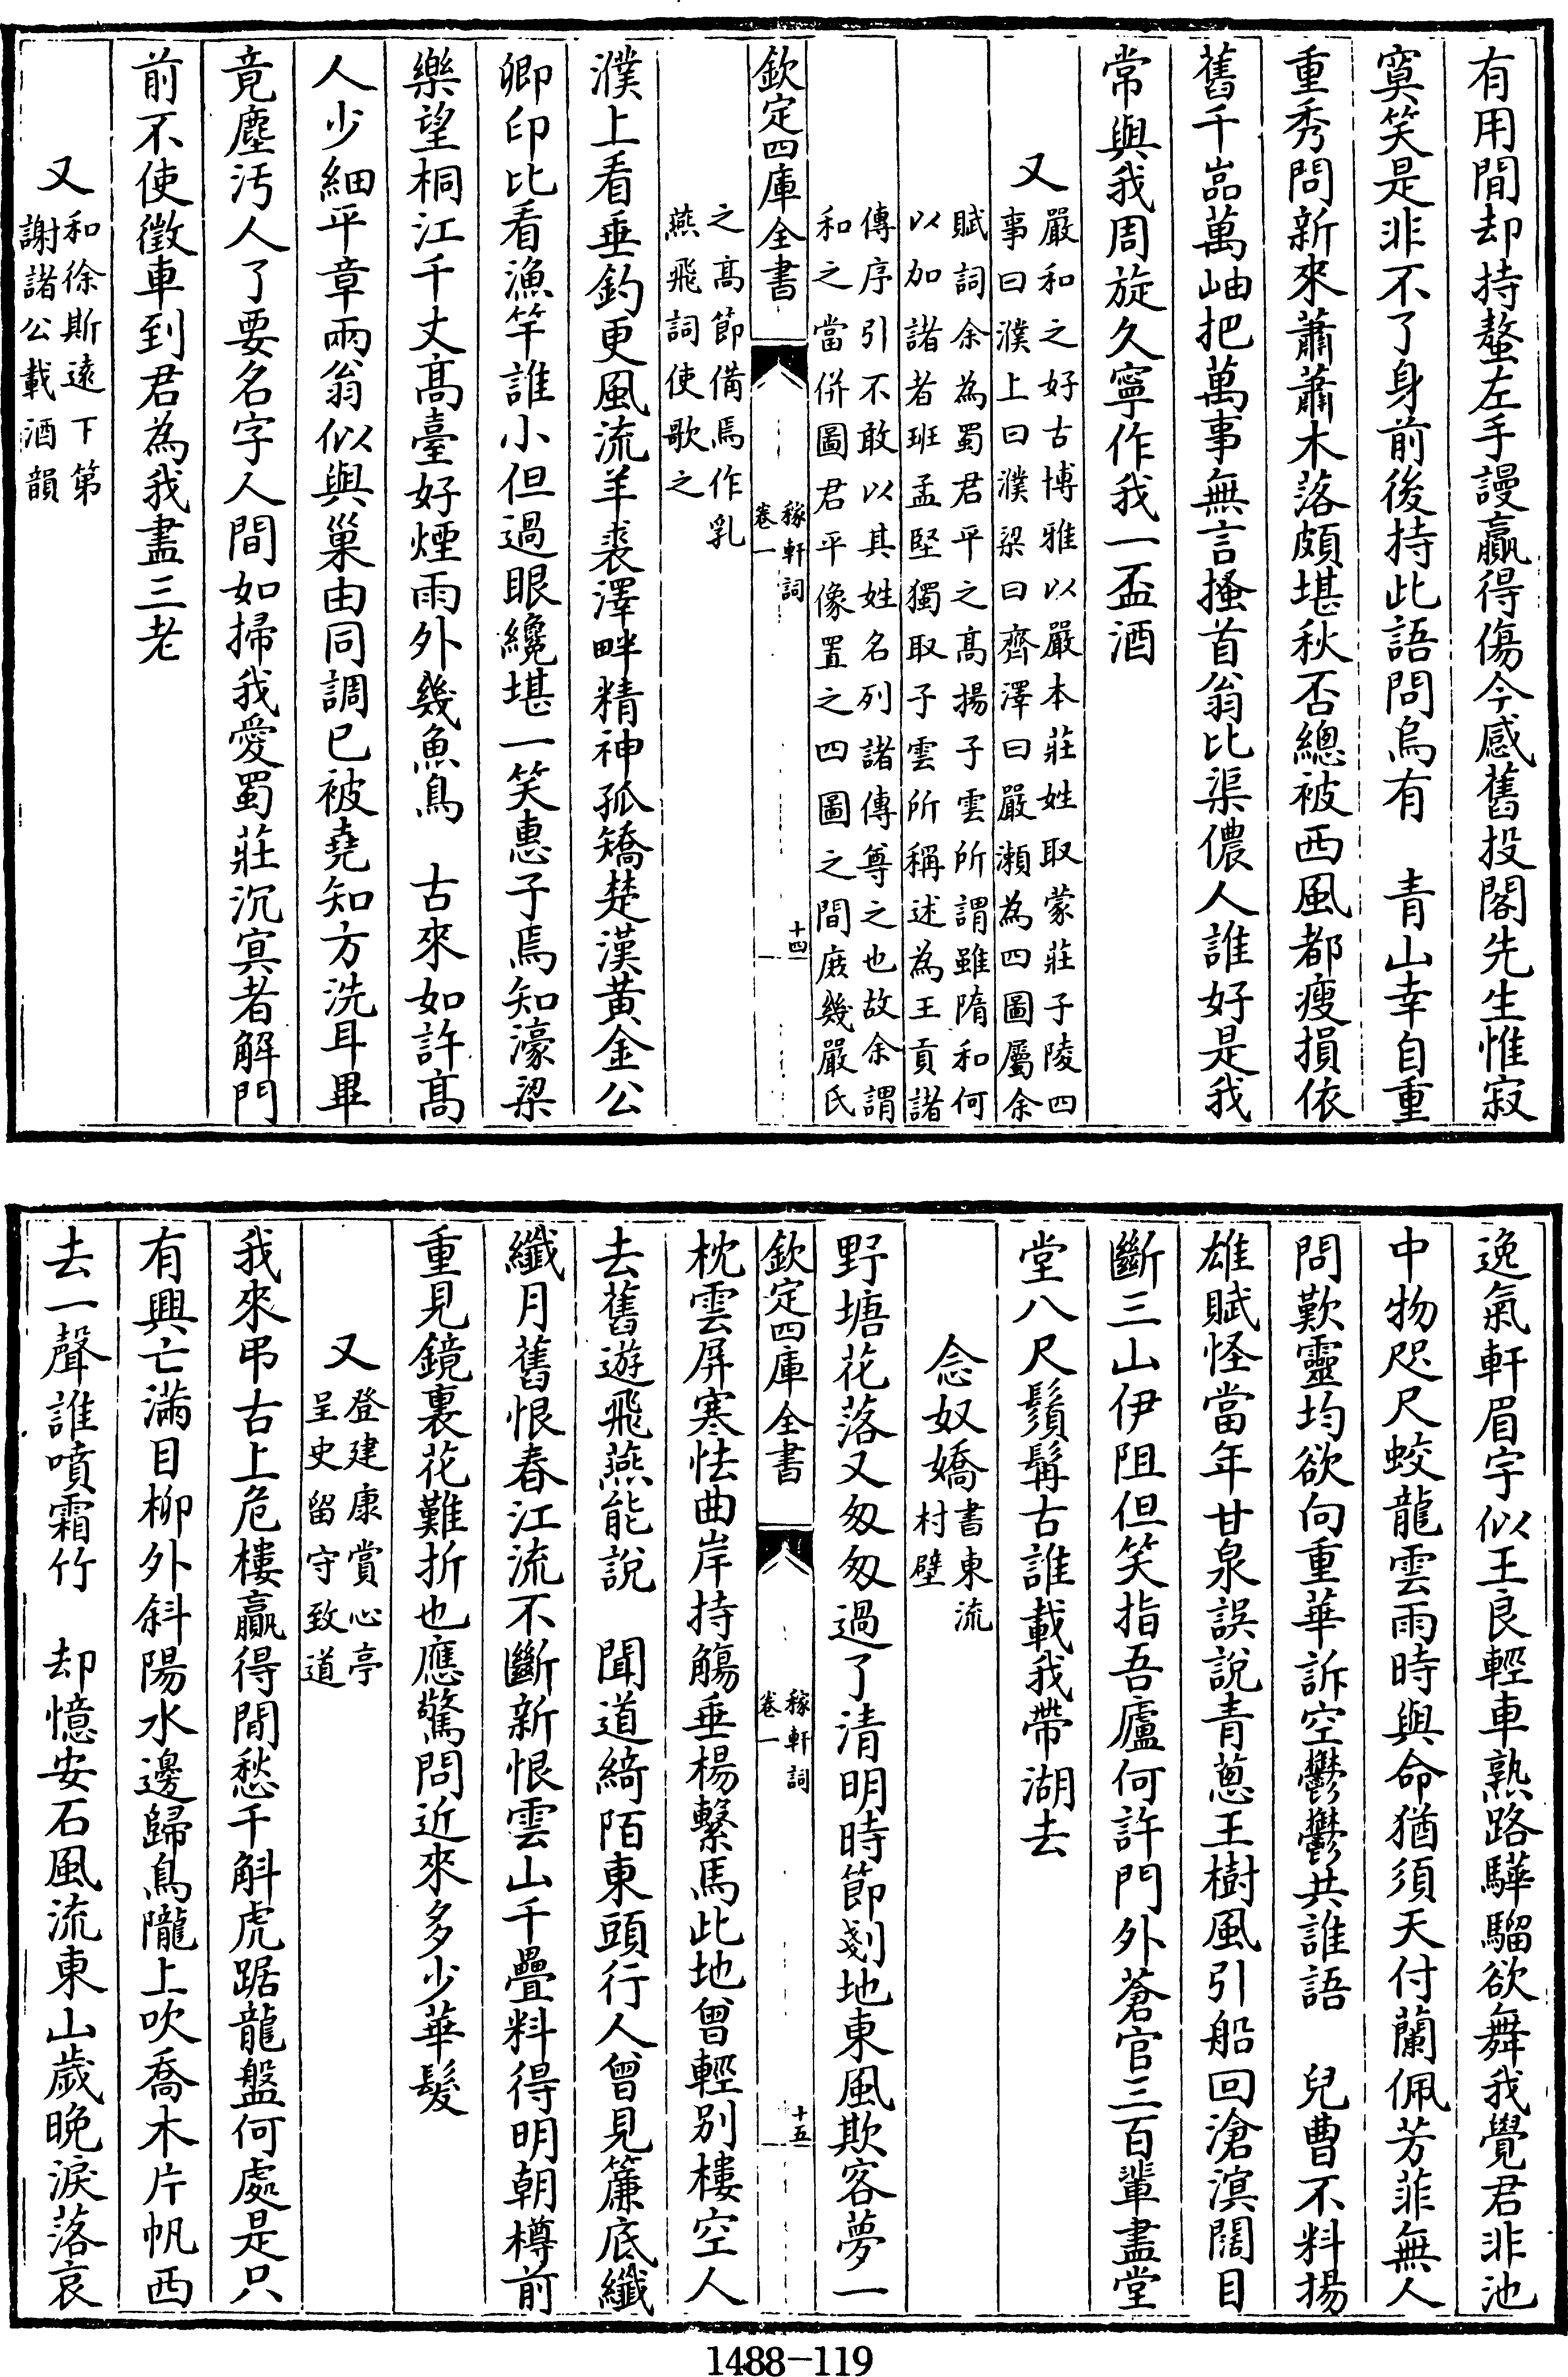 有用閒却持螯左手謾贏得傷今感舊投閣先生惟寂
寞笑是非不了身前後持此語問烏有　青山幸自重
重秀問新來蕭蕭木落頗堪秋否總被西風都瘦損依
舊千嵓萬岫把萬事無言搔首翁比渠儂人誰好是我
常與我周旋久寧作我一盃酒
又
嚴和之好古博雅以嚴本莊姓取蒙莊子陵四
事曰濮上曰濮梁曰齊澤曰嚴瀨為四圖屬余
賦詞余為蜀君平之髙揚子雲所謂雖隋和何
以加諸者班孟堅獨取子雲所稱述為王貢諸
傳序引不敢以其姓名列諸傳尊之也故余謂
和之當併圖君平像置之四圖之間庻幾嚴氏
欽定四庫全書
稼軒詞
卷一
十四
之髙節備焉作乳
燕飛詞使歌之
濮上看垂釣更風流羊裘澤畔精神孤矯楚漢黄金公
卿印比看漁竿誰小但過眼纔堪一笑惠子焉知濠梁
樂望桐江千丈髙臺好煙雨外幾魚鳥　古來如許髙
人少細平章兩翁似與巢由同調已被堯知方洗耳畢
竟塵汚人了要名字人間如掃我愛蜀莊沉冥者解門
前不使徵車到君為我畫三老
又
和徐斯逺下第
謝諸公載酒韻
逸氣軒眉宇似王良輕車熟路驊騮欲舞我覺君非池
中物咫尺蛟龍雲雨時與命猶須天付蘭佩芳菲無人
問歎靈均欲向重華訴空鬱鬱共誰語　兒曹不料揚
雄賦怪當年甘泉誤說青蔥玉樹風引船回滄溟闊目
斷三山伊阻但笑指吾廬何許門外蒼官三百輩盡堂
堂八尺鬚髯古誰載我帶湖去
念奴嬌
書東流
村壁
野塘花落又匆匆過了清明時節剗地東風欺客夢一
欽定四庫全書
稼軒詞
卷一
十五
枕雲屏寒怯曲岸持觴垂楊繫馬此地曾輕别樓空人
去舊遊飛燕能說　聞道綺陌東頭行人曾見簾底纖
纖月舊恨春江流不斷新恨雲山千疊料得明朝樽前
重見鏡裏花難折也應驚問近來多少華髮
又
登建康賞心亭
呈史留守致道
我來弔古上危樓贏得閒愁千斛虎踞龍盤何處是只
有興亡滿目柳外斜陽水邊歸鳥隴上吹喬木片帆西
去一聲誰噴霜竹　却憶安石風流東山歲晚淚落哀
1488-119